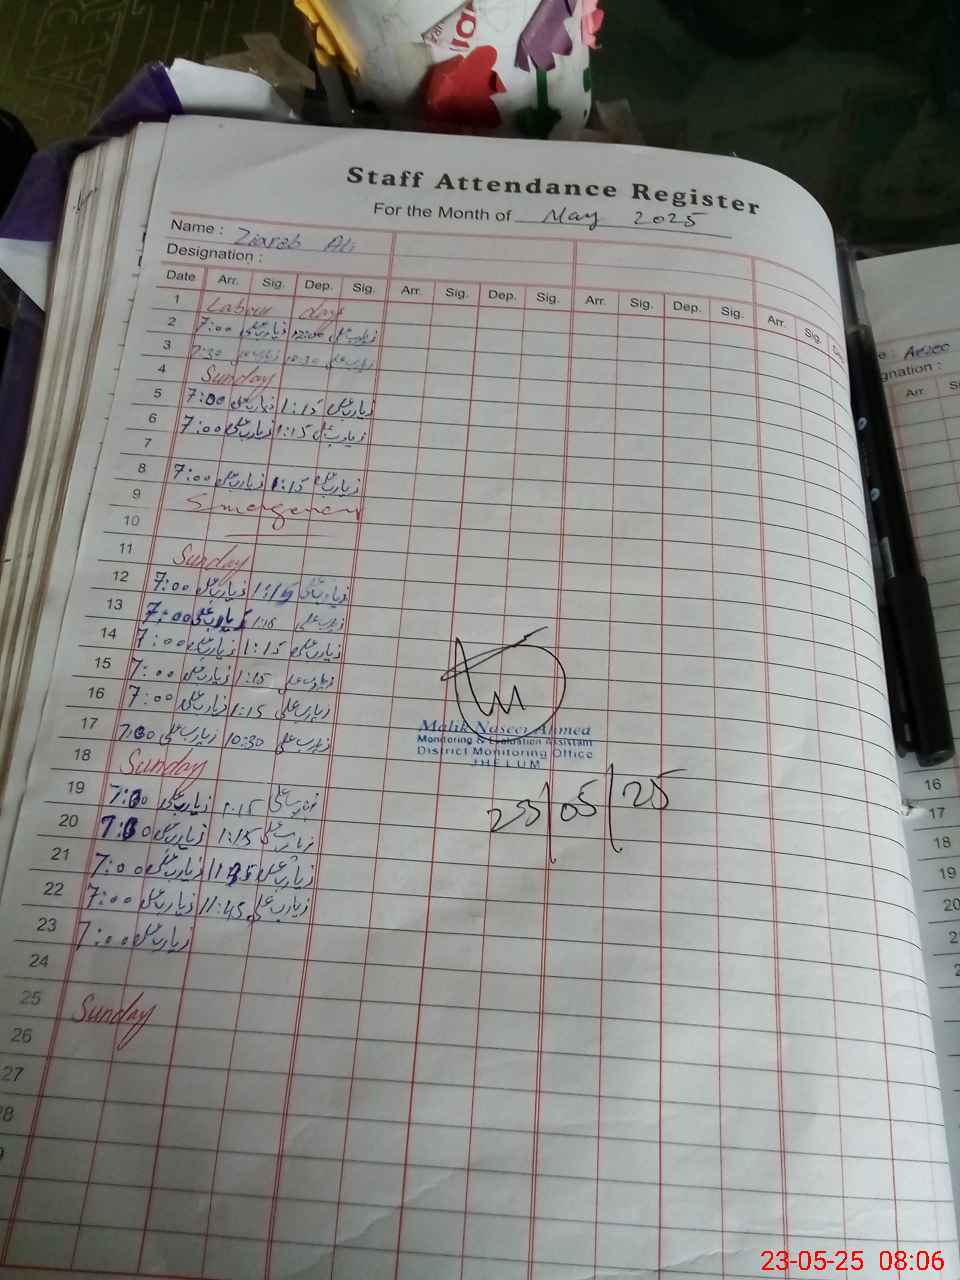 Staff Attendance Register
For the Month of May 2025
Name : Ziarab Ali
Designation :
Date Arr. Sig. Dep. Sig. Arr. Sig. Dep. Sig. Arr. Sig. Dep. Sig. Arr. Sig.
1 Labour day
2 7:00 زیارب علی 12:00 زیارب علی
3 7:30 زیارب علی 10:30 زیارب علی
4 Sunday
5 7:00 زیارب علی 1:15 زیارب علی
6 7:00 زیارب علی 1:15 زیارب علی
7
8 7:00 زیارب علی 1:15 زیارب علی
9 Emergency
10
11 Sunday
12 7:00 زیارب علی 1:15 زیارب علی
13 7:00 زیارب علی 1:15 زیارب علی
14 7:00 زیارب علی 1:15 زیارب علی
15 7:00 زیارب علی 1:15 زیارب علی
16 7:00 زیارب علی 1:15 زیارب علی
17 7:30 زیارب علی 10:30 زیارب علی
18 Sunday
19 7:00 زیارب علی 1:15 زیارب علی
20 7:00 زیارب علی 1:15 زیارب علی
21 7:00 زیارب علی زیارب علی
22 7:00 زیارب علی 11:45 زیارب علی
23 7:00 زیارب علی
24
25 Sunday
26
27
Malik Naseer Ahmed
Monitoring & Evaluation Assistant
District Monitoring Office
JHELUM
23/05/25
Arr.
16
17
18
19
20
23-05-25 08:06